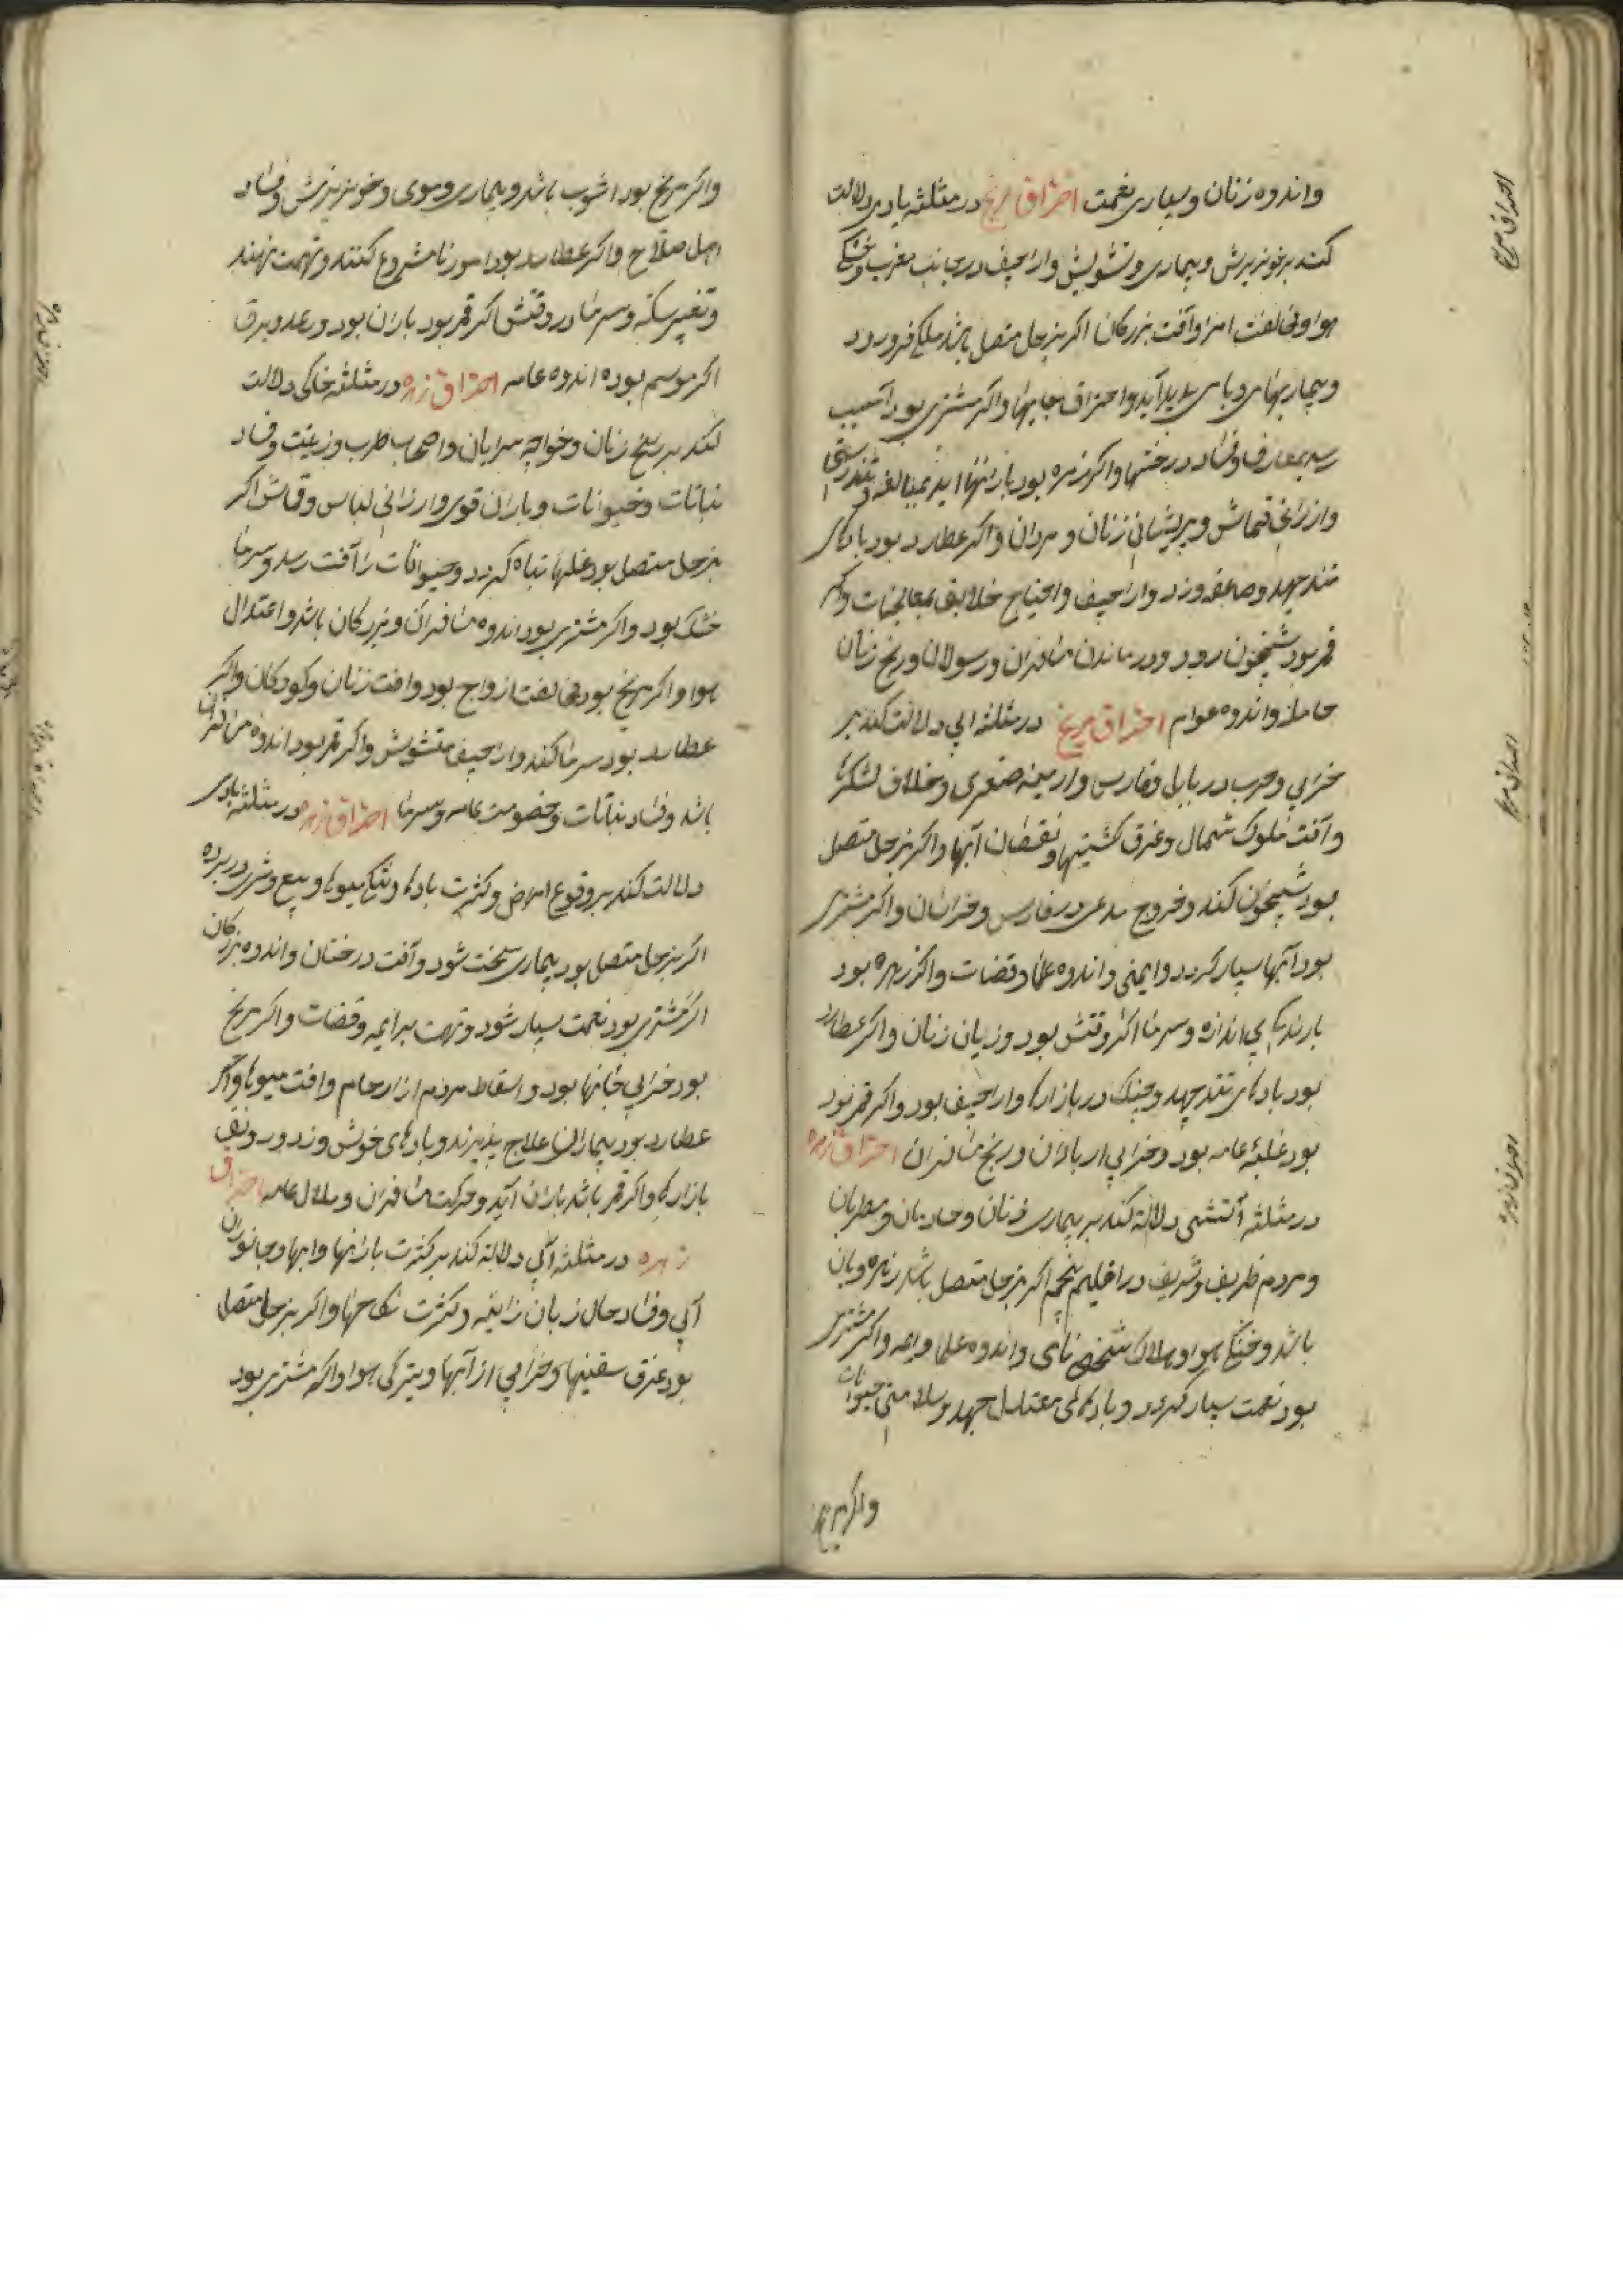 واندوه زنان و بسیاری نعمت احتراق مریخ در مثلثه بادی دلالت
کند بر خونریزش و بیماری و تشویش و اراجیف در جانب مغرب و خشکی
هوا و مخالفت امرا و آفت بزرکان اکر بزحل متصل باشد ملخ فرورد
و بیماریهای وبای پدید آید و احتراق جایها و اکر مشتری بود آسیب
رسد بمعارف و فساد درختها و اکر زهره بود بارانها اید بمبالغه و تندرستی
وارزانی قماش و پریشانی زنان و مردان و اکر عطارد بود بادهای
تند جهد و صاعقه وزد و اراجیف و احتیاج خلایق بمعالجات و اکر
قمر بود شبیخون رود و درماندن مسافران و رسولان و رنج زنان
حامله و اندوه عوام احتراق مریخ در مثلثه ابی دلالت کند بر
خرابی و حرب در بابل و فارس و ارمینه صغری و خلاف لشکرها
و آفت ملوک شمال و غرق کشتیها و نقصان آبها و اکر بزحل متصل
بود شبیخون کند و خروج مدعی در فارس و خراسان و اکر مشتری
بود آبها بسیار کردد و ایمنی و اندوه علما و قضات و اکر زهره بود
بارندکی بی اندازه و سرما اکر وقتش بود و زیان زنان و اکر عطارد
بود بادهای تند جهد و جنک در بازارها و اراجیف بود و اکر قمر بود
بود غلبهٔ عامه بود و خرابی از باران و رنج مسافران احتراق زهره
در مثلثه آتشی دلالة کند بر بیماری زنان و خادمان و مطربان
و مردم ظریف و شریف در اقلیم پنجم اکر بزحل متصل باشد زهره وبان
باشد و خنکی هوا و هلاک شخصی نامی و اندوه علما و ایمه و اکر مشتری
بود نعمت بسیار کردد و بادهای معتدل جهد و سلامتی حیوانات
واکر مریخ
واکر مریخ بود اشوب باشد و بیماری دموی و خونریزش و فساد
اهل صلاح و اکر عطارد بود امور نامشروع کنند و تهمت نهند
و تغییر سکه و سرما در وقتش اکر قمر بود باران بود و رعد و برق
اکر موسم بود و اندوه عامه احتراق زهره در مثلثه خاکی دلالت
کند بر رنج زنان و خواجه سرایان و اصحاب طرب و زینت و فساد
نباتات و حیوانات و باران قوی و ارزانی لباس و قماش اکر
بزحل متصل بود غلها تباه کردد و حیوانات را آفت رسد و سرما
خشک بود و اکر مشتری بود اندوه مسافران و بزرکان باشد و اعتدال
هوا و اکر مریخ بود مخالفت ازواج بود و افت زنان و کودکان و اکر
عطارد بود سرما کند و اراجیف متشوش و اکر قمر بود اندوه مسافران
باشد و فساد نباتات و خصومت عامه و سرما احتراق زهره در مثلثه بادی
دلالت کند بر وقوع امراض و کثرت بادها و تنکی میوها و بیع و شری در برده
اکر بزحل متصل بود بیماری سخت شود و آفت درختان و اندوه بزرکان
اکر مشتری بود نعمت بسیار شود و تهمت بر ایمه و قضات و اکر مریخ
بود خرابی خانها بود و اسقاط مردم از ارحام و افت میوها و اکر
عطارد بود بیماران علاج پذیرند و بادهای خوش وزد و رونق
بازارها و اکر قمر باشد باران آید و حرکت مسافران و ملال عامه احتراق
زهره در مثلثه آبی دلالة کند بر کثرت بارانها و ابها و جانوران
آبی و فساد حال زنان زانیه و کثرت نکاحها و اکر بزحل متصل
بود غرق سفینها و خرابی از آبها و تیرکی هوا و اکر مشتری بود
احتراق مریخ
احتراق مریخ
احتراق زهره
احتراق زهره
احتراق زهره